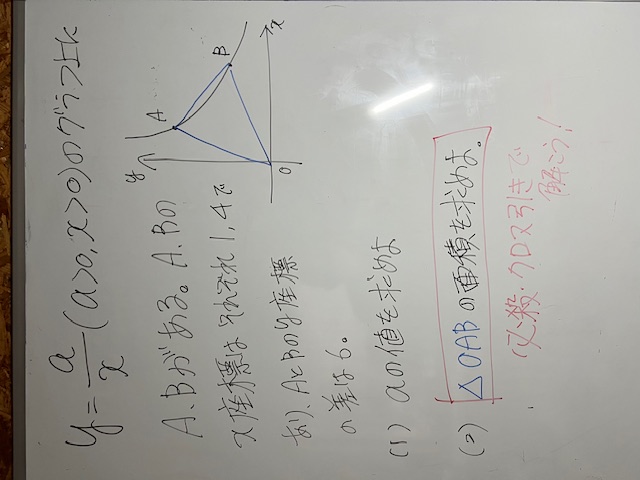 y = a/x (a>0, x>0)のグラフ上に
A.Bがある。A.Bの
x座標はそれぞれ1,4で
あり、AとBのy座標
の差は6。
(1) aの値を求めよ
(2) △OABの面積を求めよ。
必殺・クロス引きで
解こう!
y
A
B
x
O